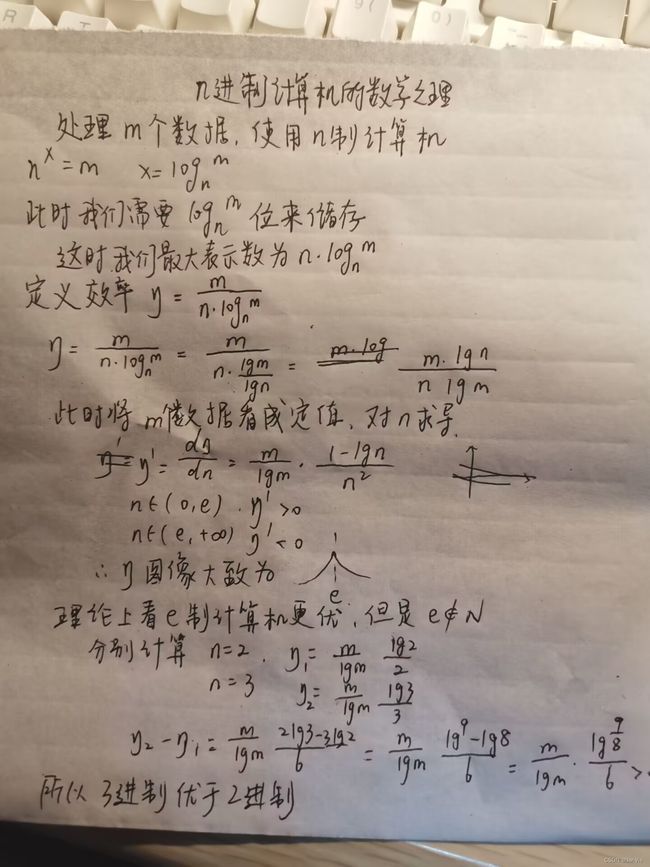 n进制计算机的数学之理
处理m个数据,使用n制计算机
n^x = m   x = log_n^m
此时我们需要 log_n^m 位来储存
这时我们最大表示数为 n·log_n^m
定义效率 η = m/(n·log_n^m)
η = m/(n·log_n^m) = m/(n·lgm/lgn) = (m·lgn)/(n lgm)
此时将m个数据看成定值,对n求导
η' = dη/dn = m/lgm · (1-lgn)/n²
n∈(0,e) . η' > 0
n∈(e,+∞) η' < 0
∴ η图像大致为
e
理论上看e制计算机更优,但是 e∉N
分别计算 n=2, η₁ = m/lgm lg2/2
n=3 η₂ = m/lgm lg3/3
η₂-η₁ = m/lgm (2lg3-3lg2)/6 = m/lgm (lg9-lg8)/6 = m/lgm · (lg 9/8)/6 >
所以3进制优于2进制